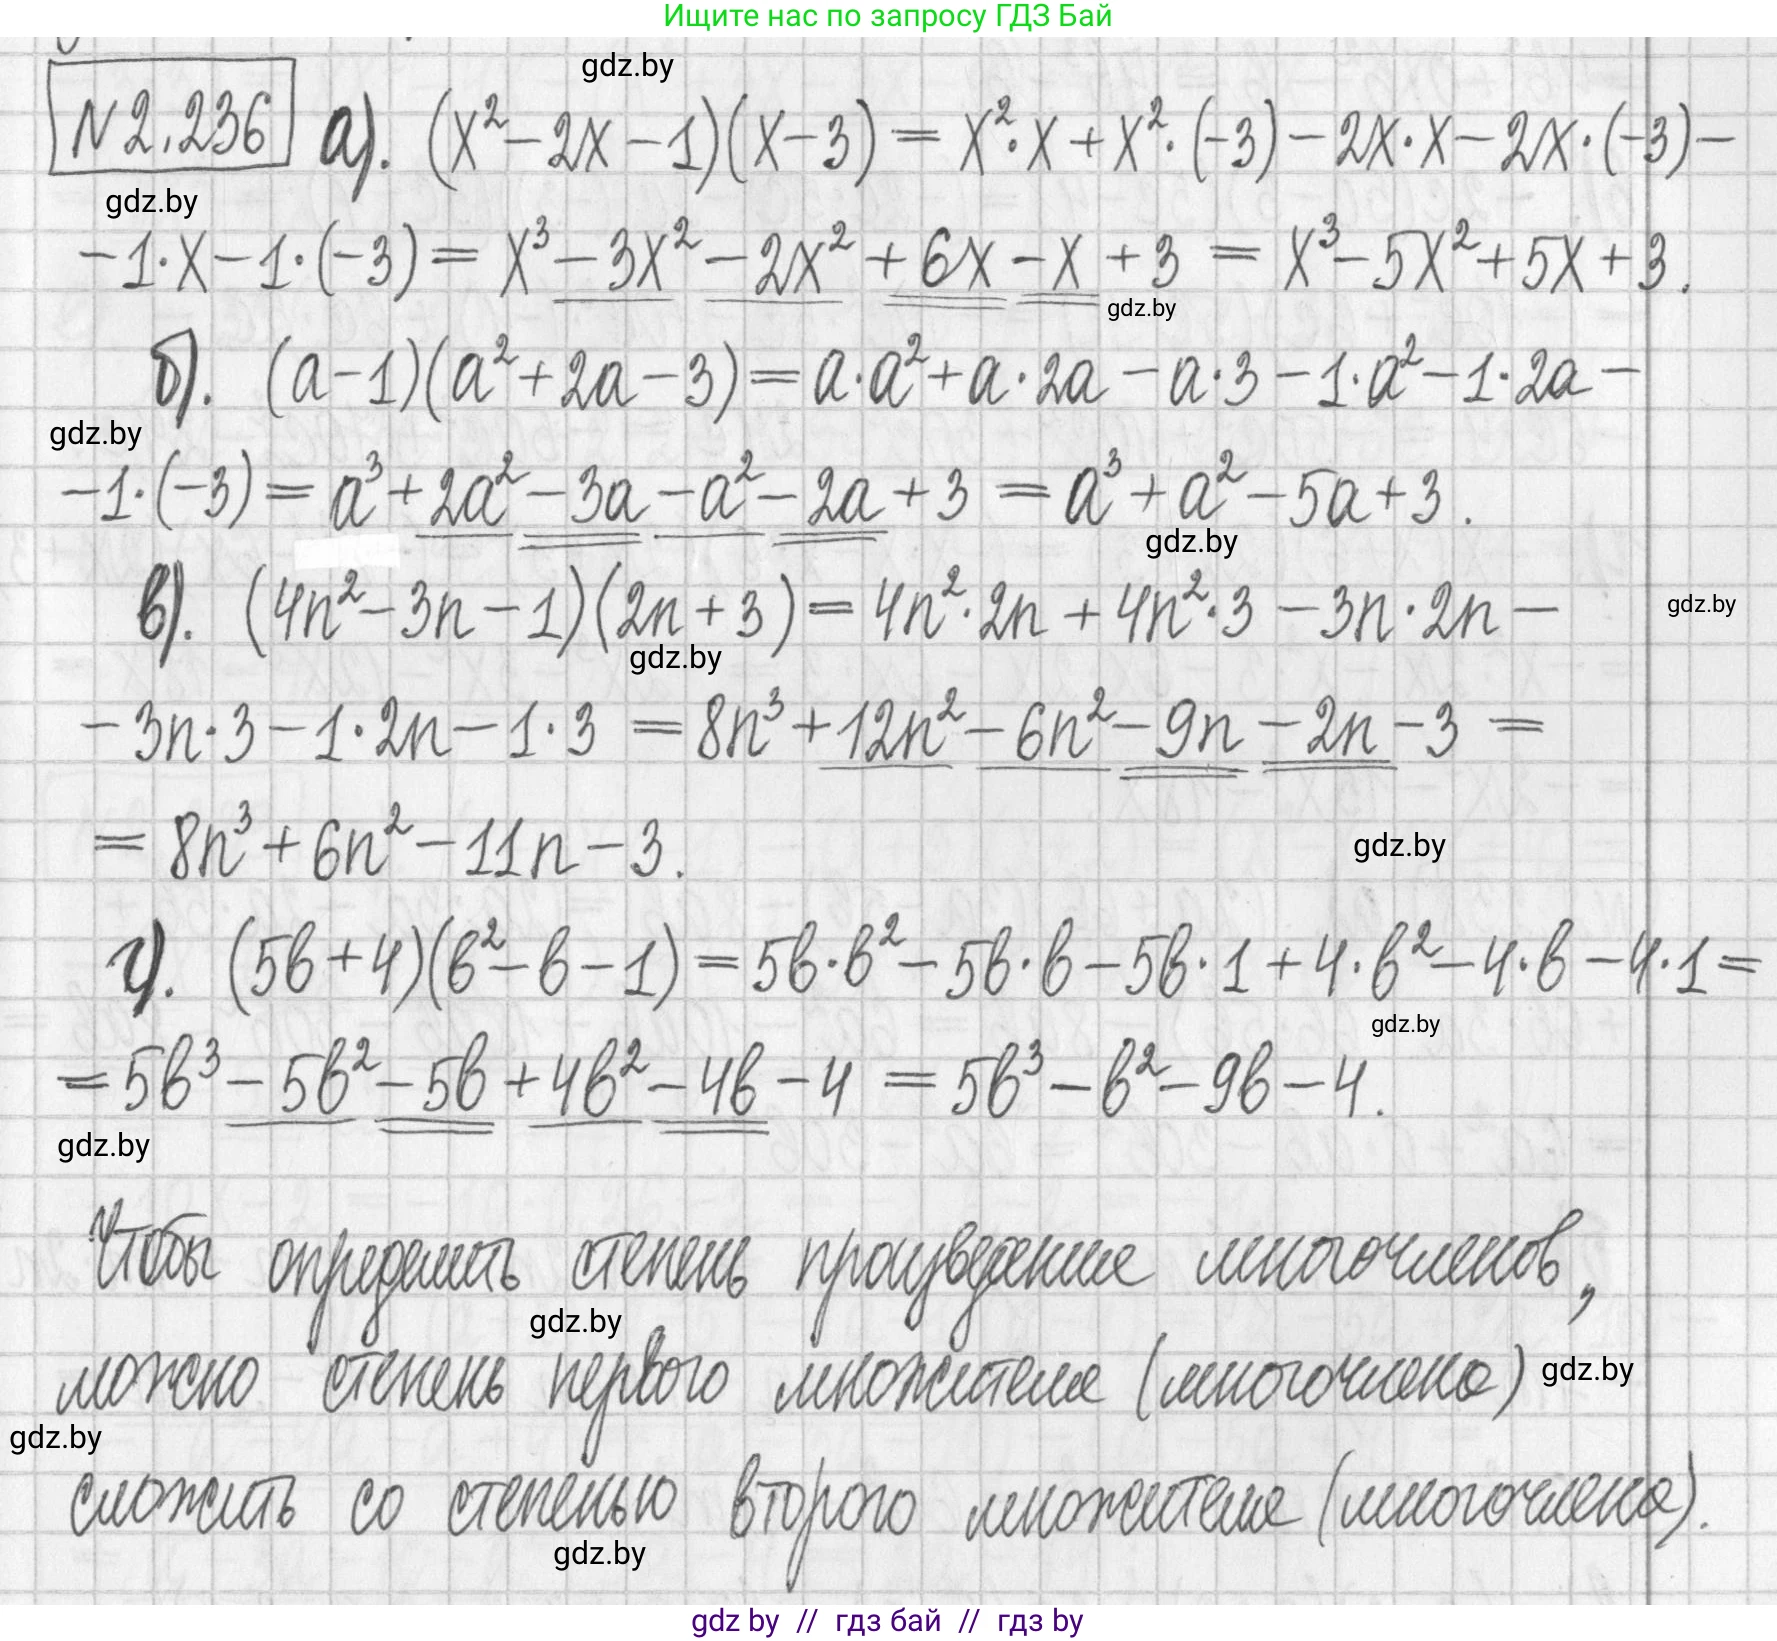 Ищите нас по запросу ГДЗ Бай
gdz.by
№2.236 а). (x²-2x-1)(x-3) = x²·x+x²·(-3)-2x·x-2x·(-3)-
gdz.by
-1·x-1·(-3) = x³-3x²-2x²+6x-x+3 = x³-5x²+5x+3.
gdz.by
б). (a-1)(a²+2a-3) = a·a²+a·2a-a·3-1·a²-1·2a-
gdz.by
-1·(-3) = a³+2a²-3a-a²-2a+3 = a³+a²-5a+3.
gdz.by
в). (4n²-3n-1)(2n+3) = 4n²·2n+4n²·3-3n·2n-
gdz.by
gdz.by
-3n·3-1·2n-1·3 = 8n³+12n²-6n²-9n-2n-3 =
= 8n³+6n²-11n-3.
gdz.by
г). (5b+4)(b²-b-1) = 5b·b²-5b·b-5b·1+4·b²-4·b-4·1=
gdz.by
= 5b³-5b²-5b+4b²-4b-4 = 5b³-b²-9b-4.
gdz.by
Чтобы определить степень произведение многочленов,
gdz.by
можно степень первого множителя (многочлена)
gdz.by
gdz.by
сложить со степенью второго множителя (многочлена).
gdz.by
gdz by // гдз бай // гдз by